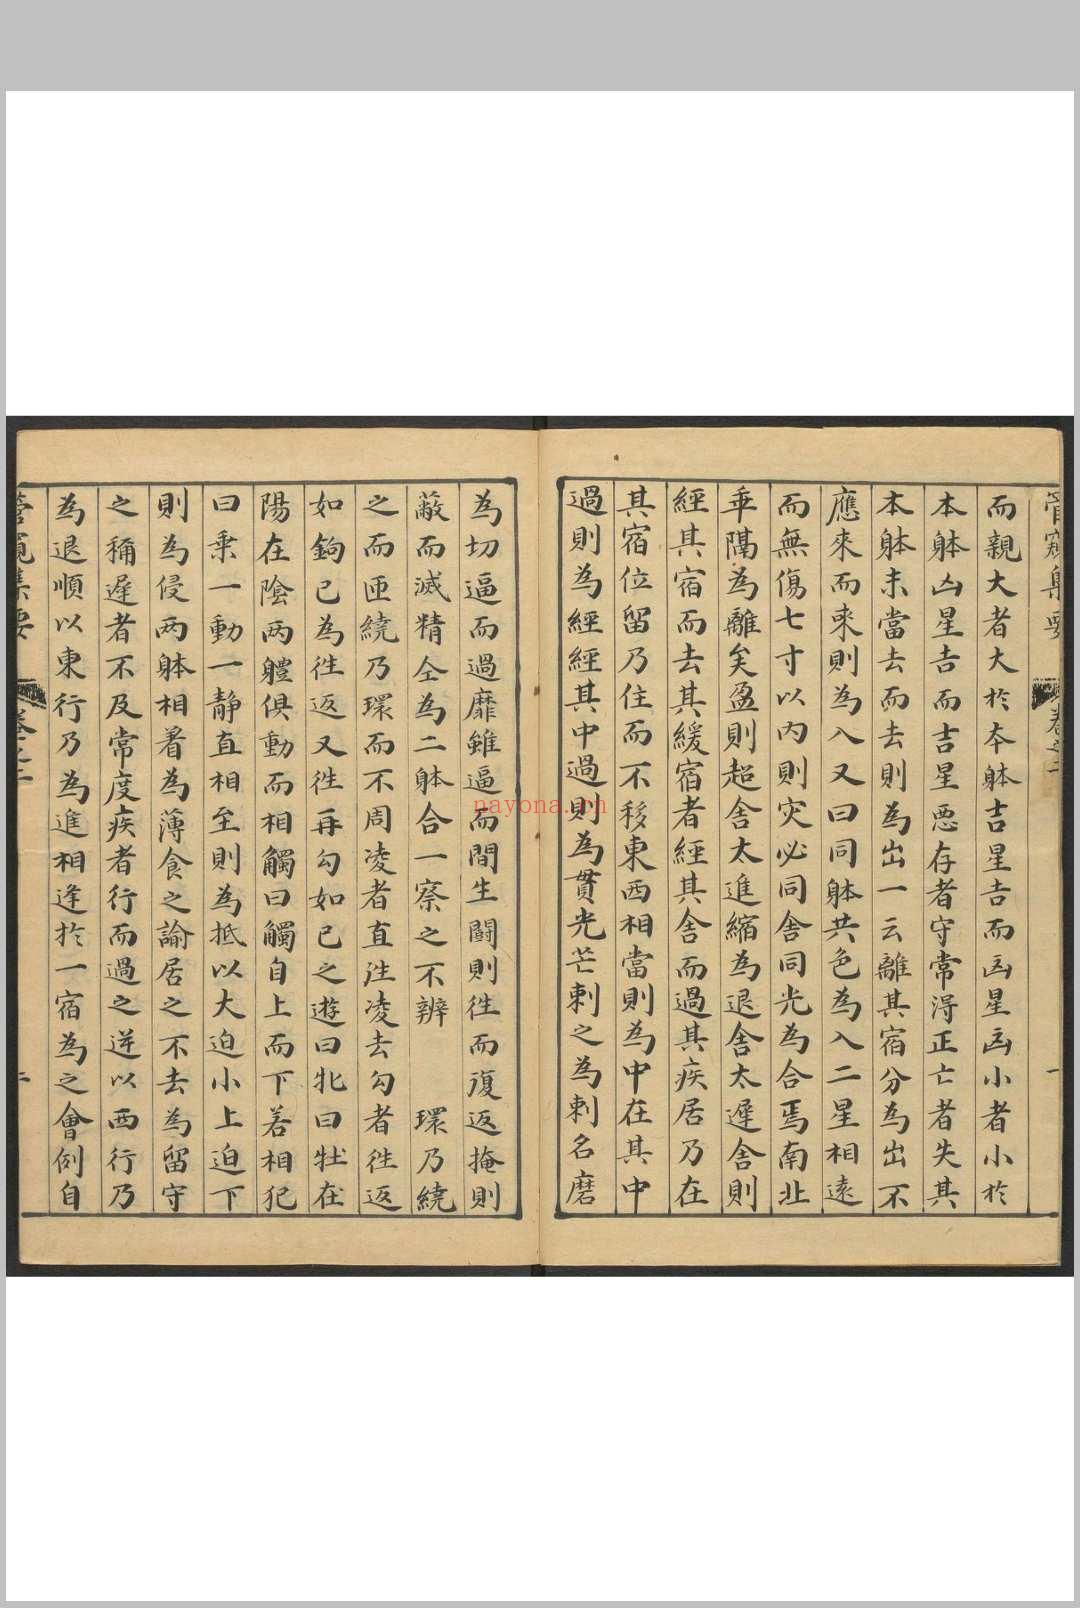 管窺集要 卷之二 一
而親大者大於本躰吉星吉而凶星凶小者小於
本躰凶星吉而吉星悪存者守常淂正亡者失其
本躰未當去而去則為出一云離其宿分為出不
應來而來則為入又曰同躰共色為入二星相遠
而無傷七寸以内則灾必同舎同光為合焉南北
乖隔為離矣盈則超舎太進縮為退舎太遲舎則
經其宿而去其緩宿者經其舎而過其疾居乃在
其宿位留乃住而不移東西相當則為中在其中
過則為經經其中過則為貫光芒刺之為刺名磨
為切逼而過靡雖逼而間生鬪則徃而復返掩則
蔽而滅精全為二躰合一察之不辨 環乃繞
之而匝繞乃環而不周凌者直泩凌去勾者徃返
如鉤已為徃返又徃再勾如已之遊曰牝曰牡在
陽在陰两軆俱動而相觸曰觸自上而下若相犯
曰乗一動一静直相至則為抵以大迫小上迫下
則為侵两躰相著為薄食之諭居之不去為留守
之稱遲者不及常度疾者行而過之逆以西行乃
為退順以東行乃為進相逢於一宿為之會例自
管窺集要 卷之二 二
nayona.cn